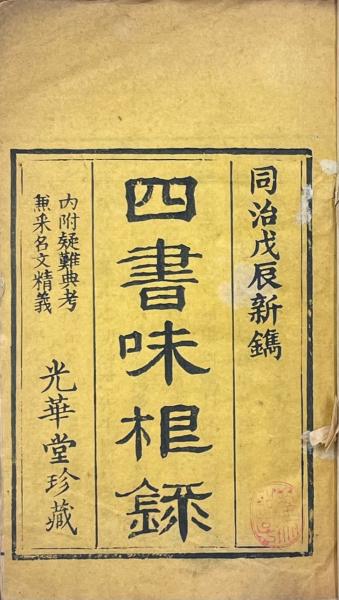 同治戊辰新鐫
四書味根錄
內附疑難典考
兼采名文精義
光華堂珍藏